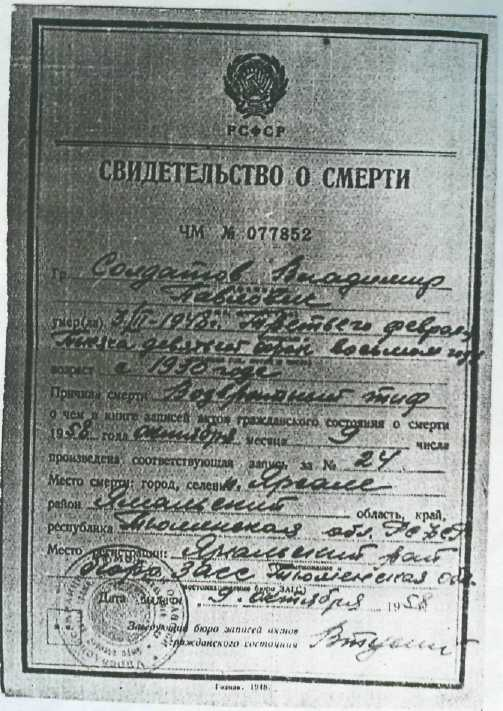 РСФСР
СВИДЕТЕЛЬСТВО О СМЕРТИ
ЧМ № 077852
Гр. Солдатов Владимир
Павлович
умер(ла) 3/II-1948г. Третьего февраля
тысяча девятьсот сорок восьмом году
возраст с 1930 года
Причина смерти Возвратный тиф
о чем в книге записей актов гражданского состояния о смерти
1958 года октября месяца 9 числа
произведена соответствующая запись за № 24.
Место смерти: город, селение п. Яр-сале
район Ямальский область, край,
республика Тюменская обл. РСФСР
Место регистрации: Ямальский рай
бюро ЗАГС Тюменская обл.
Дата выдачи „9" октября 1958
Заведующий бюро записей актов
гражданского состояния
Гознак. 1948.